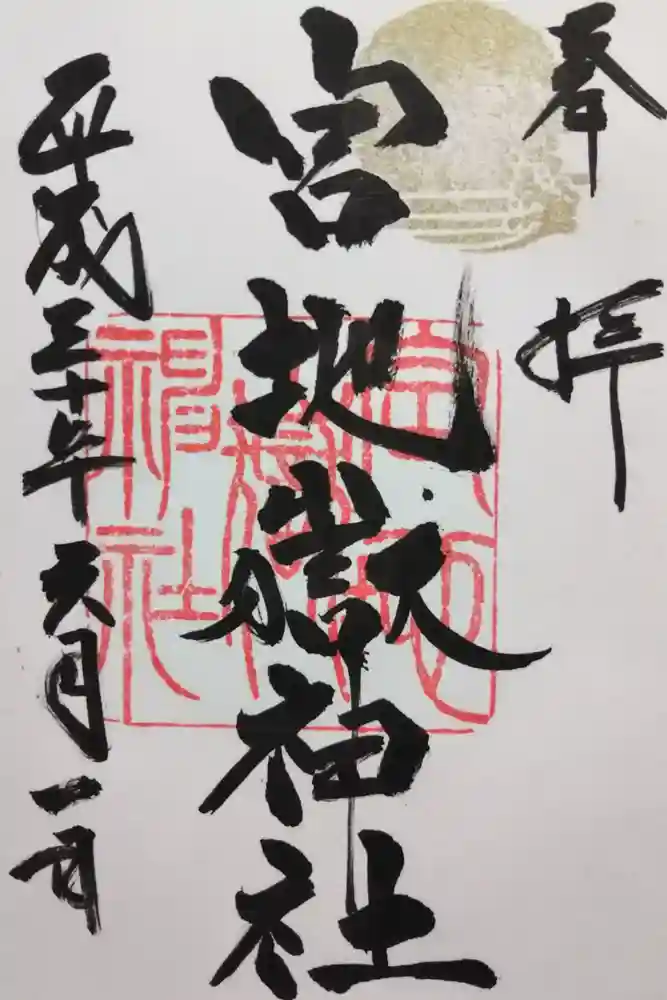 奉拝
宮地嶽神社
平成三十年六月一日
宮地嶽神社